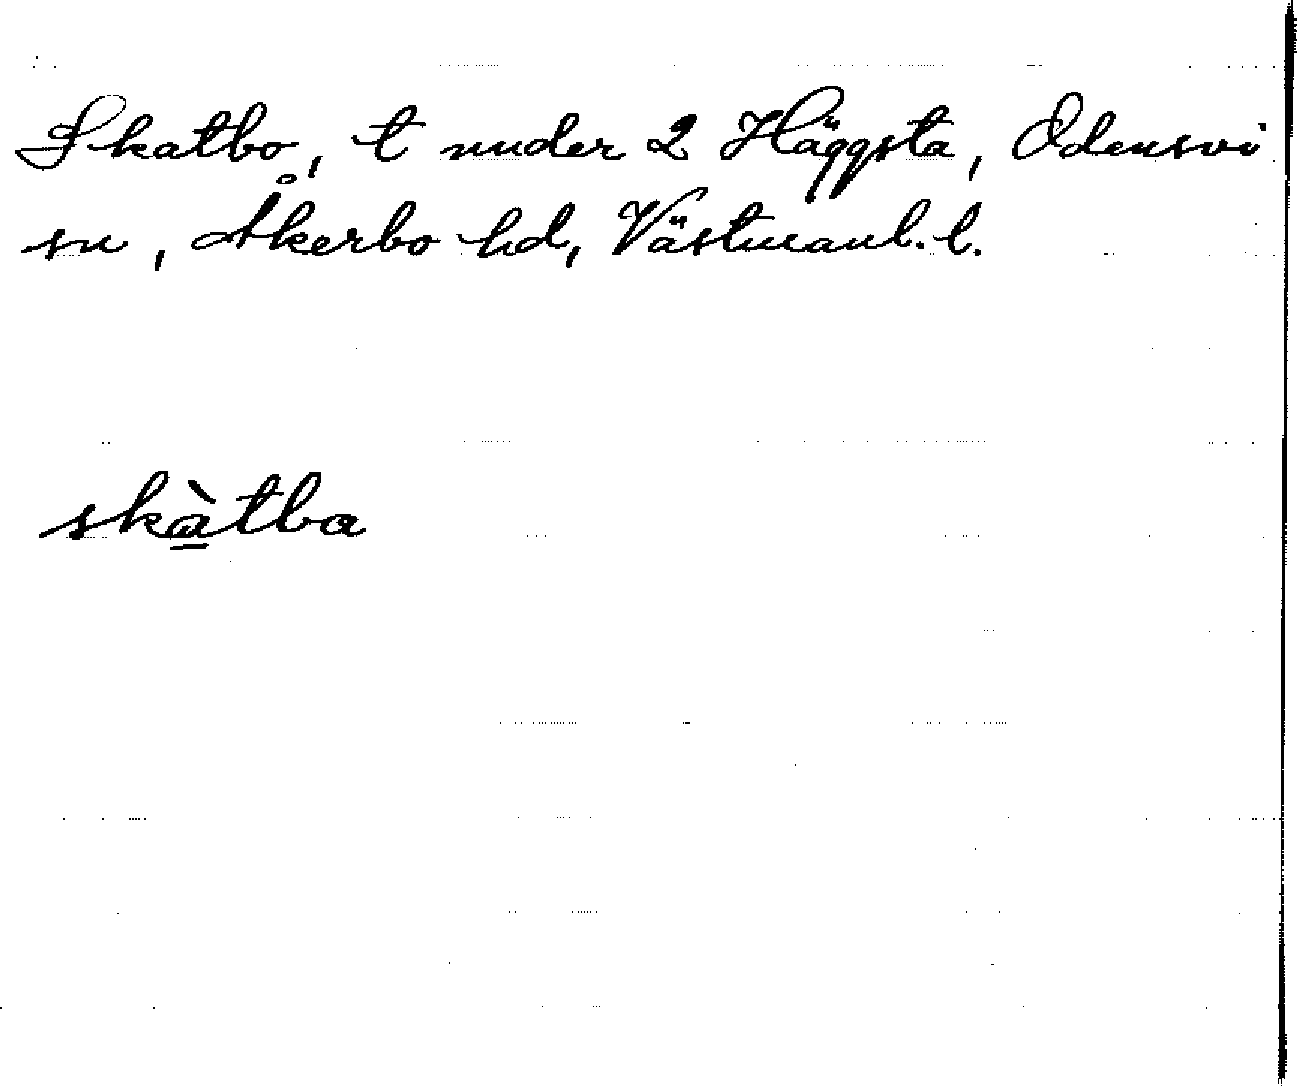 Skatbo, t under 2 Häggsta, Odensvi
sn, Åkerbo hd, Västmanl. l.
skàtba